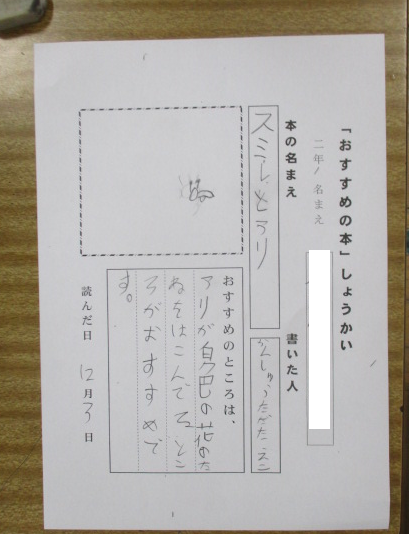 「おすすめの本」しょうかい
二年1 名まえ
本の名まえ
スミレとアリ
書いた人
おすすめのところは、
アリが
の花のた
ねをはこんで
ろがおすすめで
す。
読んだ日 12月3日